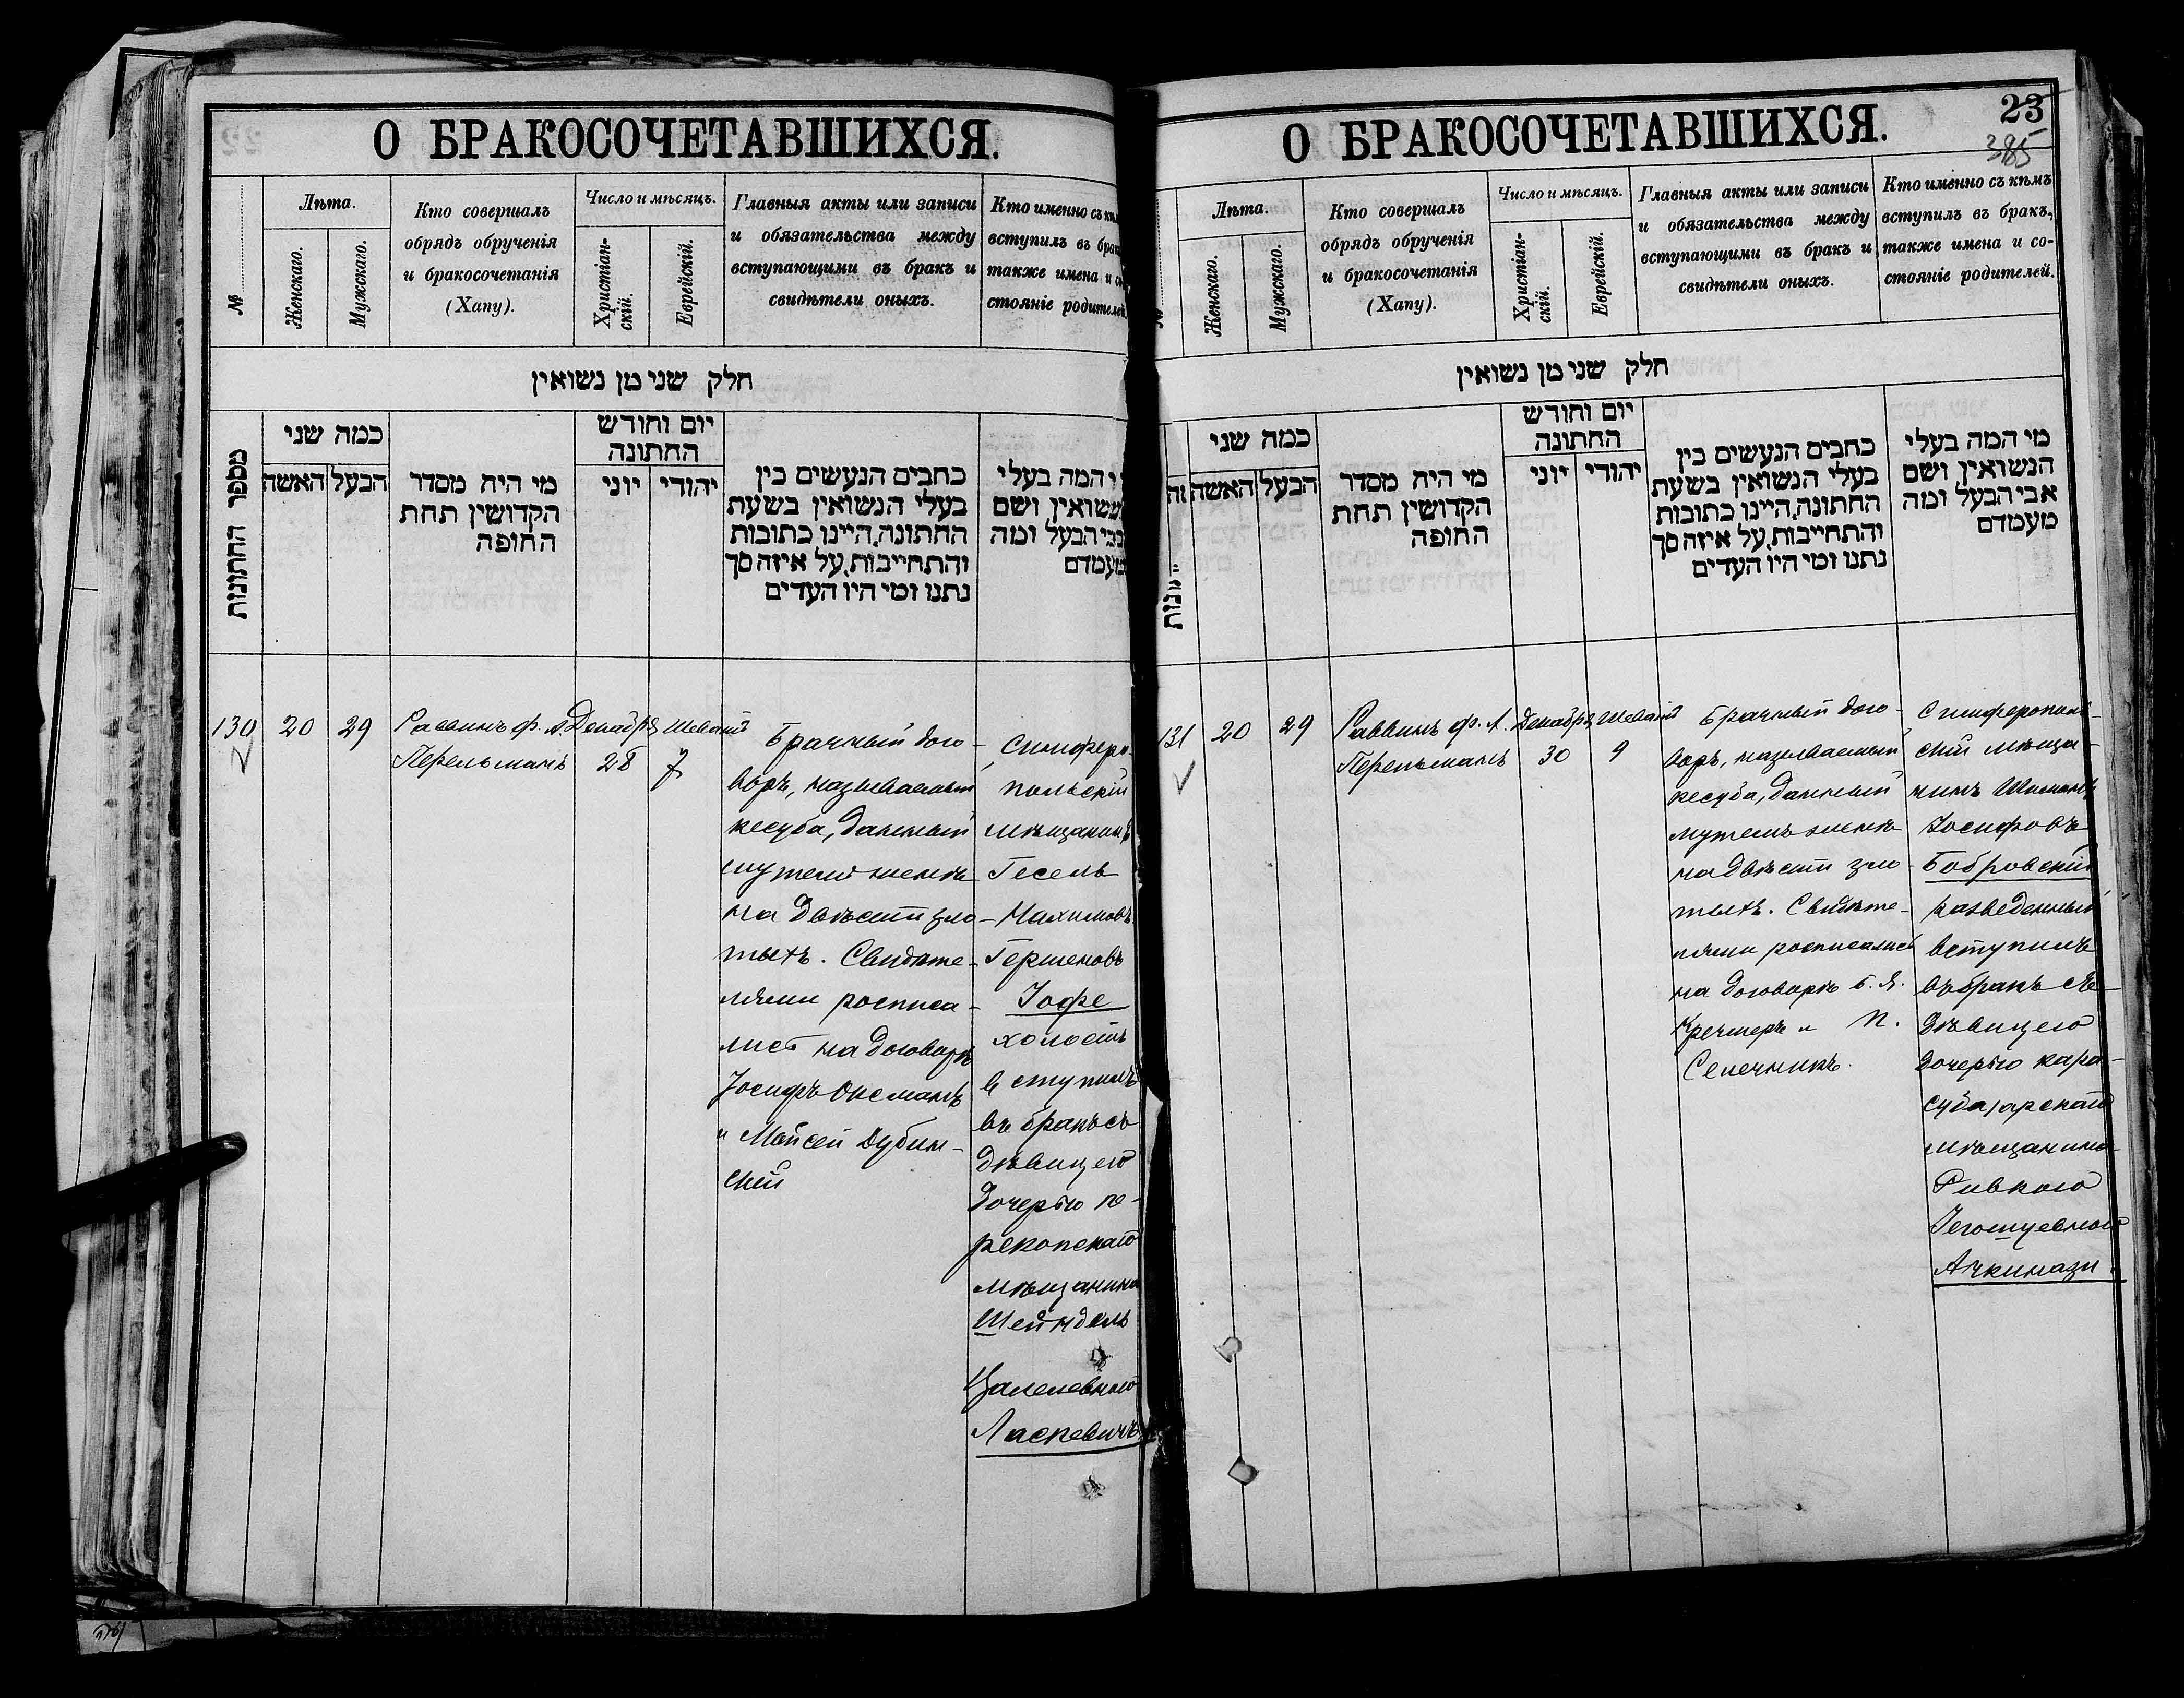 О БРАКОСОЧЕТАВШИХСЯ.
№
Лѣта.
Женскаго.
Мужскаго.
Кто совершалъ
обрядъ обрученія
и бракосочетанія
(Хапу).
Число и мѣсяцъ.
Христіан-
скій.
Еврейскій.
Главныя акты или записи
и обязательства между
вступающими въ бракъ и
свидѣтели оныхъ.
Кто именно съ
вступилъ въ
также имена и
стояніе родителей
חלק שני מן נשואין
מספר החתונות
כמה שני
האשה
הבעל
מי היה מסדר
הקדושין תחת
החופה
יום וחודש
החתונה
יוני
יהודי
כתבים הנעשים בין
בעלי הנשואין בשעת
החתונה, היינו כתובות
והתחייבות, על איזה סך
נתנו ומי היו העדים
המה בעלי
ושם
הבעל ומה
מעמדם
130
20
29
Раввинъ ф. А.
Перельманъ
Декабря
28
Шеватъ
7
Брачный дого-
воръ, называемый
кесуба, данный
мужемъ женѣ
на двѣсти зло-
тыхъ. Свидѣте-
лями росписа-
лись на договорѣ
Іосифъ Оксманъ
и Мойсей Дубин-
скій
Симферо-
польскій
мѣщанинъ
Гесель
Нахимовъ
Гершеновъ
Іофе
холостъ
вступилъ
въ бракъ съ
дѣвицею
дочерью пе-
рекопскаго
мѣщанина
Шейндель
Цалелевною
Ласкевичъ
О БРАКОСОЧЕТАВШИХСЯ.
23
385
Лѣта.
Женскаго.
Мужскаго.
Кто совершалъ
обрядъ обрученія
и бракосочетанія
(Хапу).
Число и мѣсяцъ.
Христіан-
скій.
Еврейскій.
Главныя акты или записи
и обязательства между
вступающими въ бракъ и
свидѣтели оныхъ.
Кто именно съ кѣмъ
вступилъ въ бракъ,
также имена и со-
стояніе родителей.
חלק שני מן נשואין
כמה שני
האשה
הבעל
מי היה מסדר
הקדושין תחת
החופה
יום וחודש
החתונה
יוני
יהודי
כתבים הנעשים בין
בעלי הנשואין בשעת
החתונה, היינו כתובות
והתחייבות, על איזה סך
נתנו ומי היו העדים
מי המה בעלי
הנשואין ושם
אבי הבעל ומה
מעמדם
131
20
29
Раввинъ ф. А.
Перельманъ
Декабря
30
Шеватъ
9
Брачный дого-
воръ, называемый
кесуба, данный
мужемъ женѣ
на двѣсти зло-
тыхъ. Свидѣте-
лями росписались
на договорѣ Б. Я.
Кречмеръ и П.
Селечникъ.
Симферополь-
скій мѣща-
нинъ Шимонъ
Іосифовъ
Бобровскій
разведенный
вступилъ
въ бракъ съ
дѣвицею
дочерью кара-
субазарскаго
мѣщанина
Ривкою
Іегошуевною
Ачкинази.